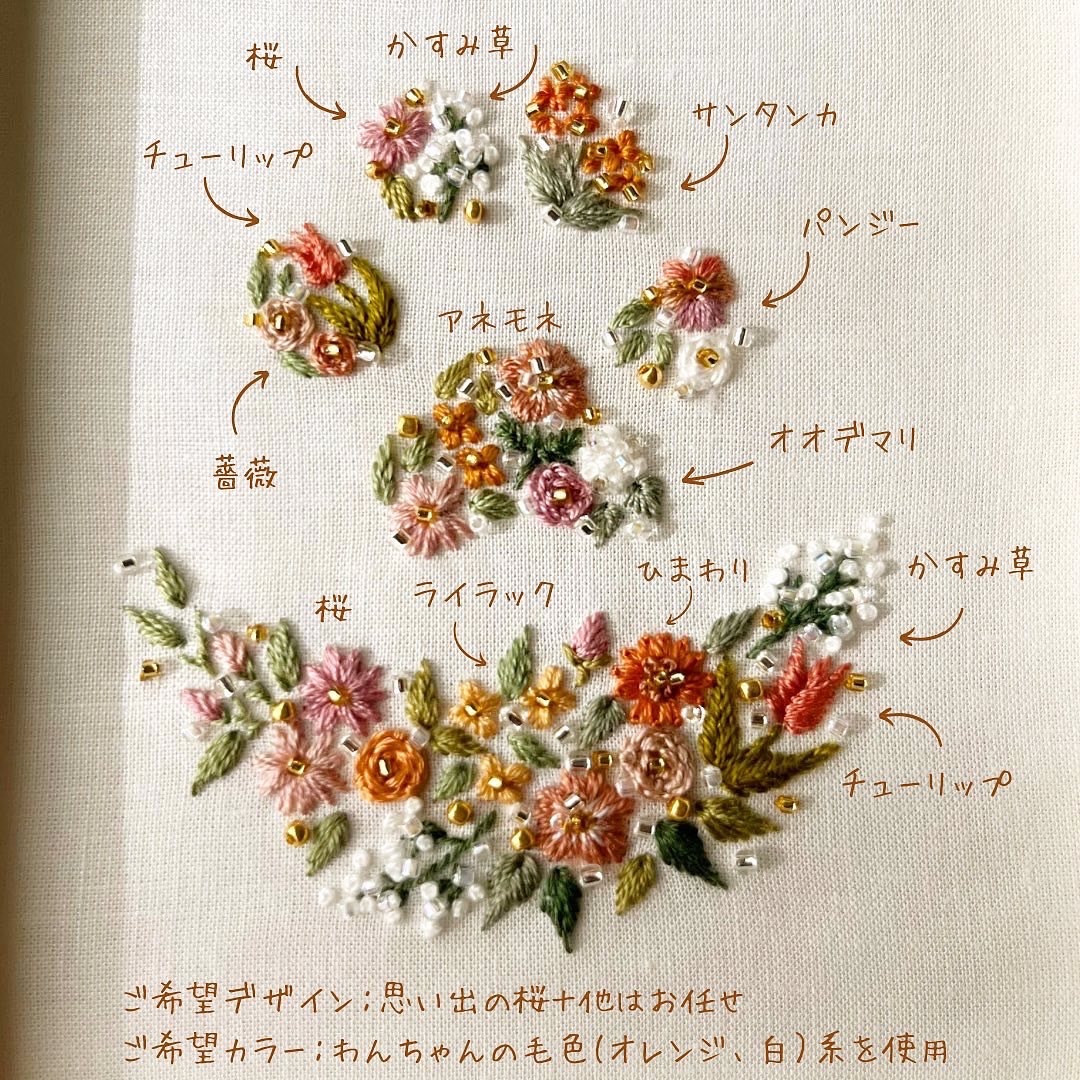 桜
かすみ草
サンタンカ
チューリップ
パンジー
アネモネ
オオデマリ
薔薇
ライラック
ひまわり
かすみ草
桜
チューリップ
ご希望デザイン;思い出の桜+他はお任せ
ご希望カラー;わんちゃんの毛色(オレンジ、白)系を使用